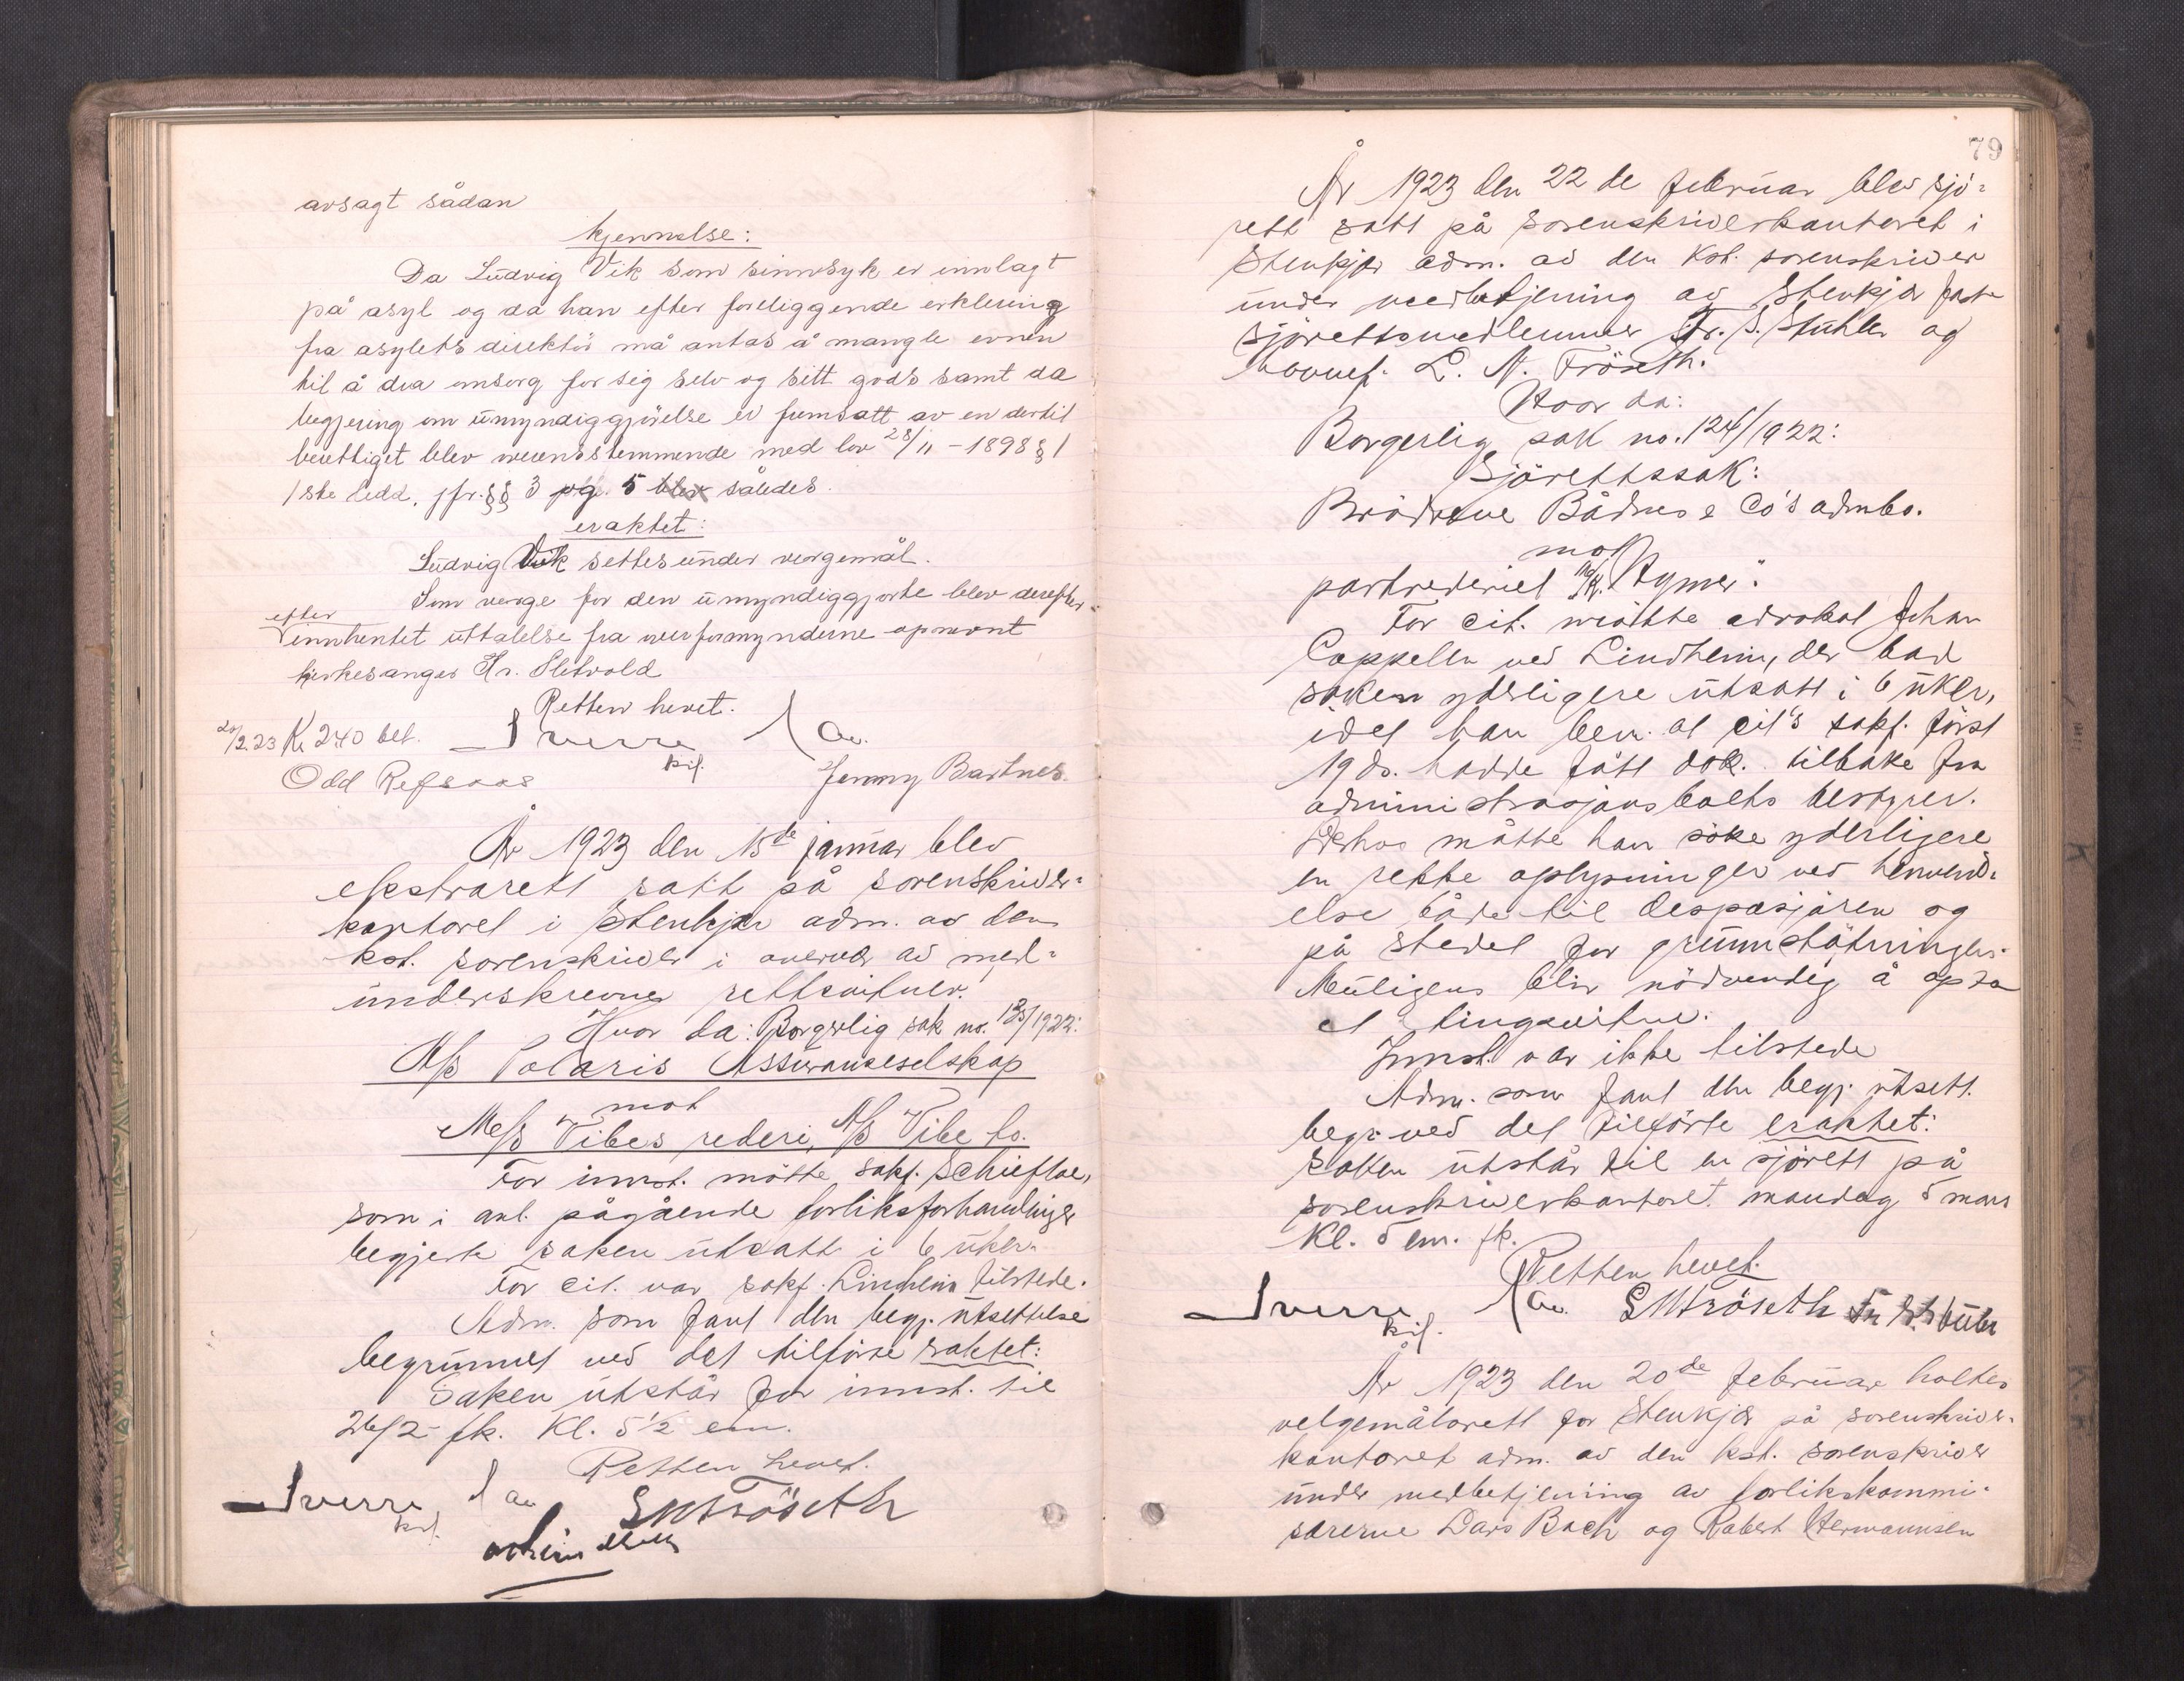 avsagt sådan
kjennelse:
Da Ludvig Vik som sinnsyk er innlagt
på asyl og da han efter foreliggende erklering
fra asylets direktör må antas å mangle evnen
til å dra omsorg for sig selv og sitt gods samt da
begjering om umyndiggjörelse er fremsatt av en dertil
berettiget blev overensstemmende med lov 28/11-1898 § 1
1ste ledd, jfr. §§ 3 og 5 blev således
eraktet:
Ludvig Vik settes under vergemål.
Som verge for den umyndiggjorte blev derefter
efter
innhentet uttalelse fra overformynderne opnevnt
kirkesanger Kr. Sletvold
Retten hevet.
20/2.23 Kr 240 bet. Sverre Aa.
kst.
Odd Refsaas Jenny Bartnes.
År 1923 den 15de januar blev
ekstrarett satt på sorenskriver=
kontoret i Stenkjer adm. av den
kst. sorenskriver i overvær av med=
underskrevne rettsvitner.
Hvor da: Borgerlig sak no. 125/1922:
A/S Polaris Assuranseselskap
mot
M/S Vibes rederi, A/S Vibe Co.
For innst. mötte sakf. Schiefloe,
som i anl. pågående forliksforhandlinger
begjerte saken utsatt i 6 uker.
For cit. var sakf. Lindheim tilstede.
Adm. som fant den begj. utsettelse
begrunnet ved det tilförte eraktet:
Saken utstår for innst. til
26/2 fk. Kl. 5 1/2 em.
Retten hevet.
Sverre Aa. L N Fröseth
kst.
79
År 1923 den 22 de februar blev sjö=
rett satt på sorenskriverkontoret i
Stenkjer adm. av den kst. sorenskriver
under medbetjening av Stenkjer faste
sjörettsmedlemmer Fr. S. Stühler og
L. N. Fröseth.
Hvor da:
Borgerlig sak no. 124/1922:
Sjörettssak:
Brödrene Bådnes & Co's admbo.
mot
partrederiet M/K. "Hymer".
For cit. mötte advokat Johan
Cappelen ved Lindheim, der bad
saken yderligere utsatt i 6 uker,
idet han bem. at cit's sakf. först
19 ds. hadde fått dok. tilbake fra
administrasjonsboets bestyrer.
Derhos måtte han söke yderligere
en rekke oplysninger ved henvend=
else både til despasjören og
på stedet for grunnstötningen.
Muligens blir nödvendig å opta
et tingsvitne.
Innst. var ikke tilstede
Adm. som fant den begj. utsett.
begr. ved det tilförte eraktet:
Saken utstår til en sjörett på
sorenskriverkontoret mandag 5 mars
Kl. 5 em. fk.
Retten hevet.
Sverre Aa. L N Fröseth Fr. S. Stühler
kst.
År 1923 den 20de februar holtes
vergemålsrett for Stenkjer på sorenskriver=
kontoret adm. av den kst. sorenskriver
under medbetjening av forlikskommi=
sererne Lars Bach og Robert Hermannsen